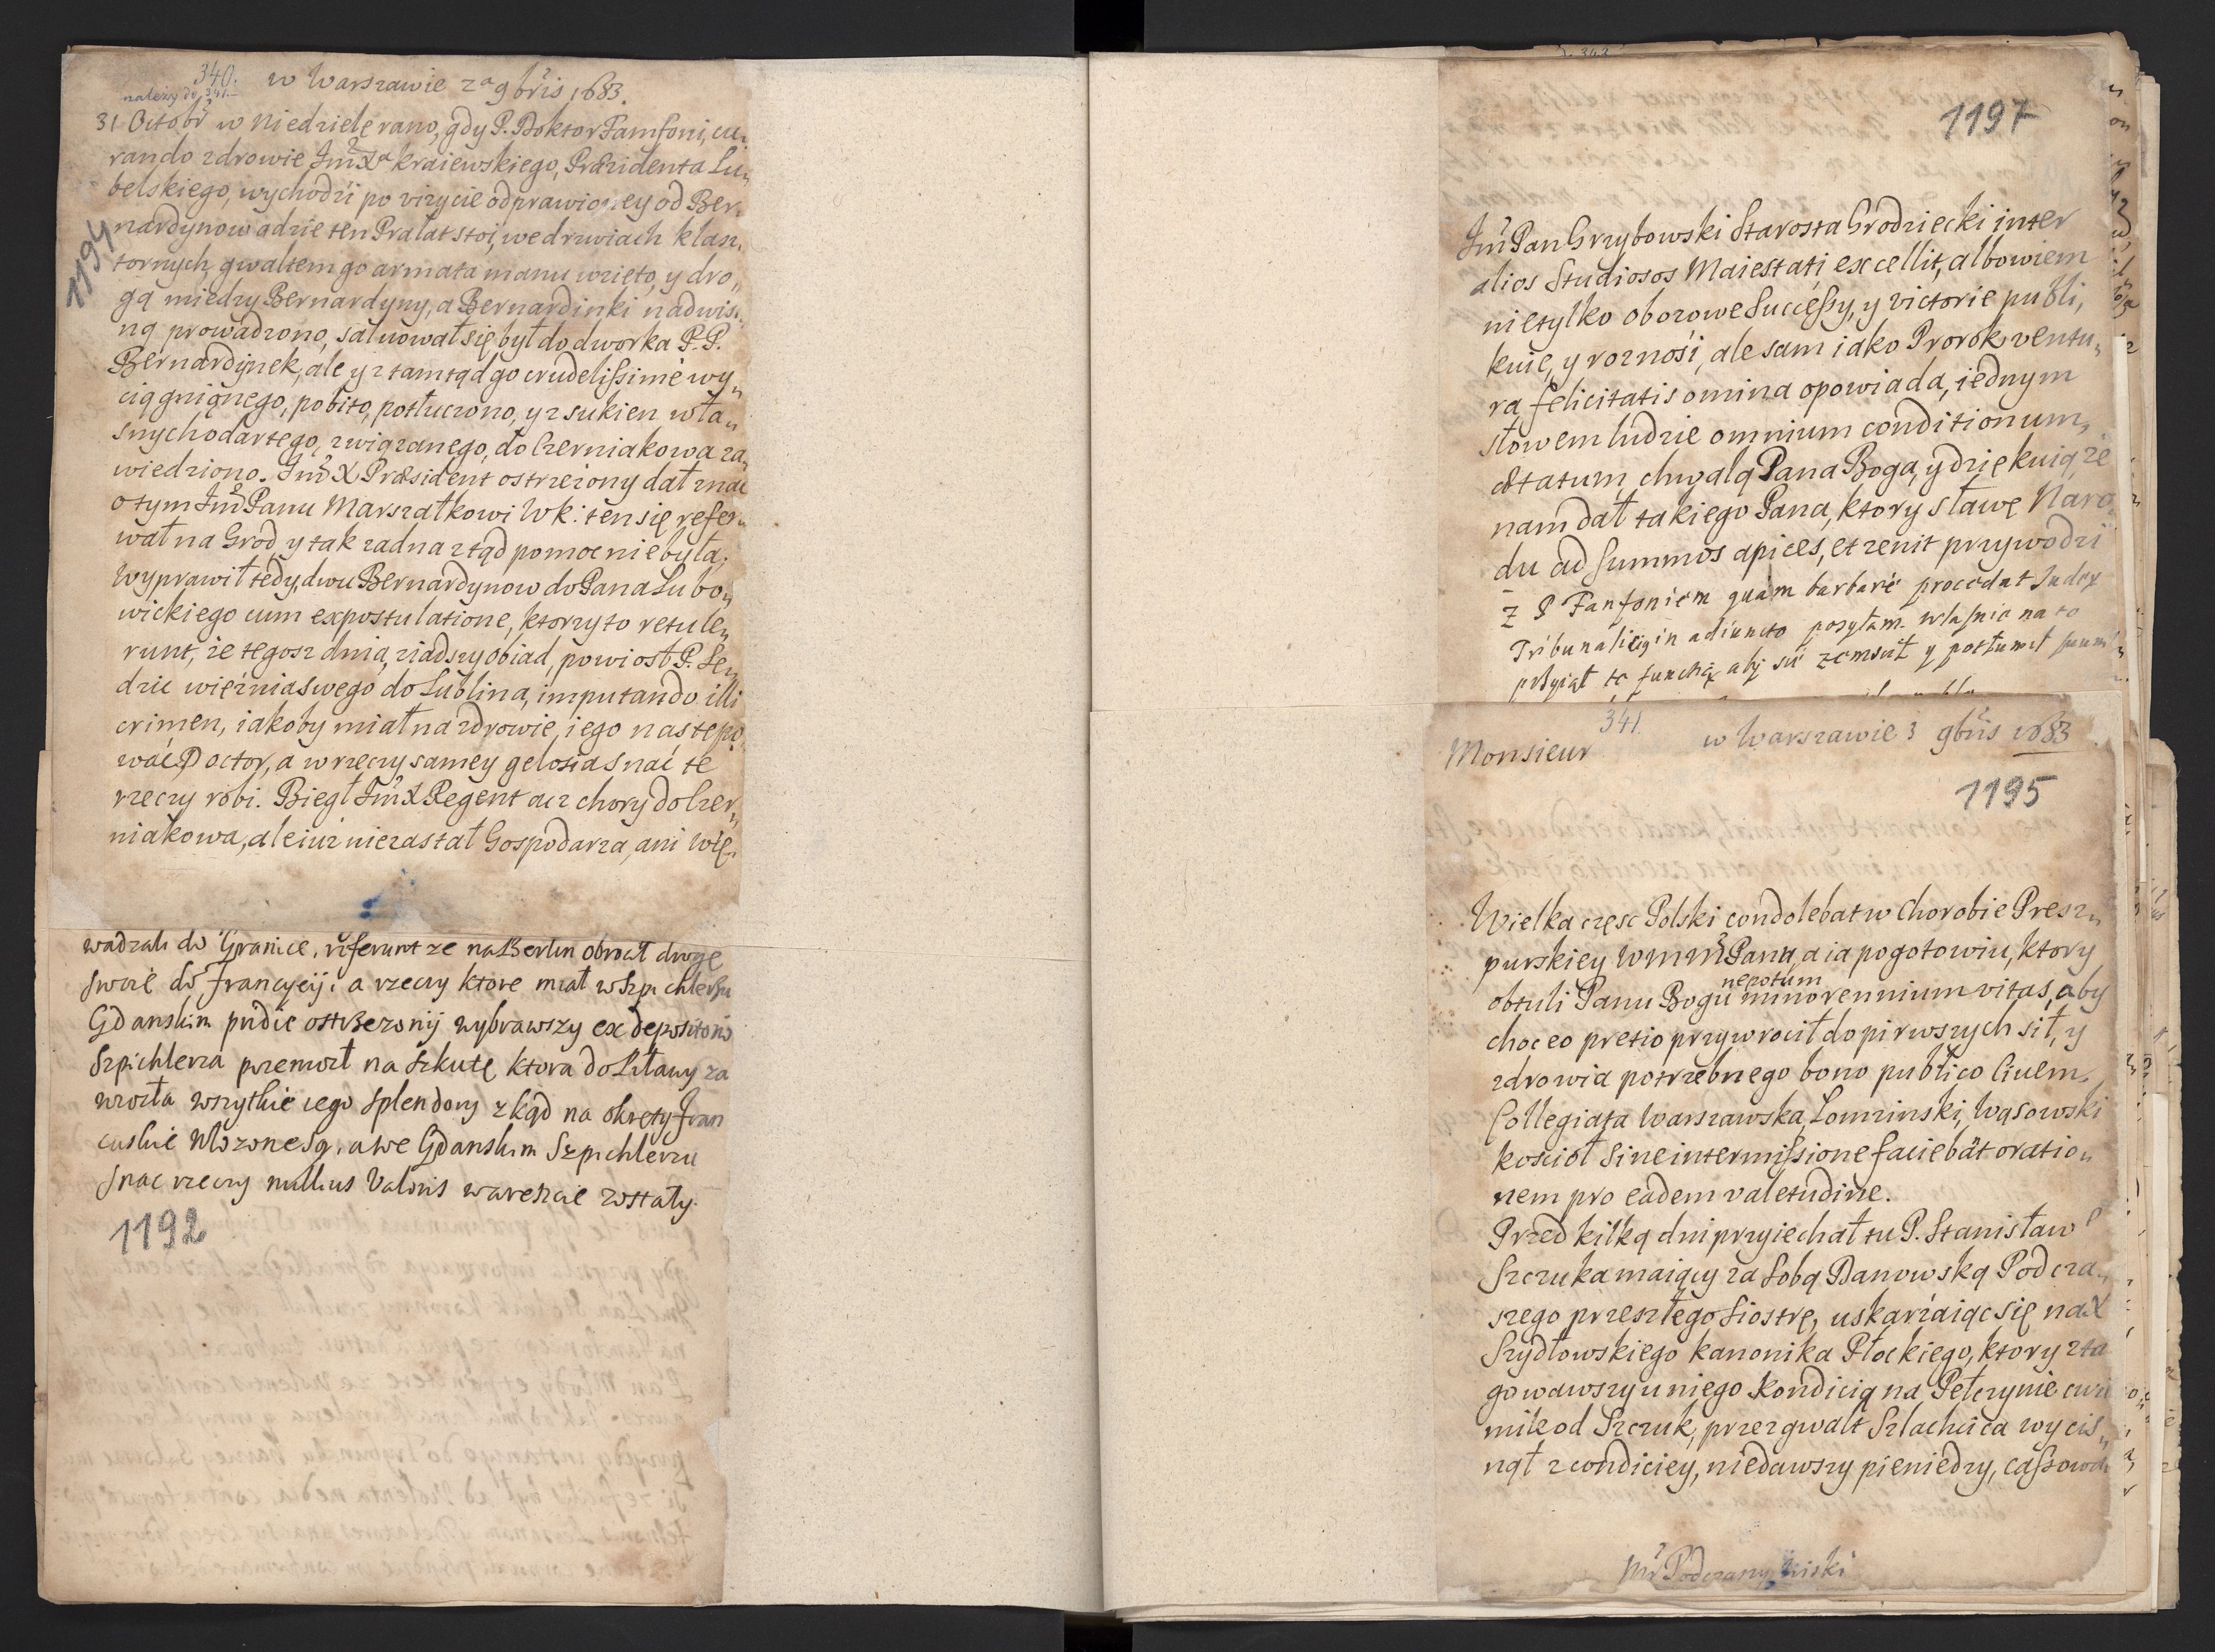 340.
należy do 341.
w Warszawie 2ª 9bris 1683.
31 Octobr w Niedzielę rano, gdy P. Doktor Famfoni, cu„
rando zdrowie JmX Kraiewskiego, Præzidenta Lu„
belskiego, wychodzi po vizycie odprawioney od Ber„
nardynow gdzie ten Prałat stoi, we drzwiach klasz„
tornych gwałtem go armata manu wzięto, y dro„
gą miedzy Bernardyny, a Bernardinki nad wis„
ną prowadzono, salwował się był do dworka P.P.
Bernardynek, ale y z tamtąd go crudelissimè wy„
ciągnionego, pobito, potłuczono, y z sukien wła„
snych odartego, związanego, do Czerniakowa za„
wiedziono. Jm X Præsident ostrzeżony dał znać
o tym Jm Panu Marszałkowi Wk: ten się refero„
wał na Gród, y tak zadna ztąd pomoc nie była.
Wyprawił tedy, dwu Bernardynow do Pana Lubo„
wickiego cum expostulatione, ktorzy to retule„
runt, że tegosz dnia, ziadszy obiad, powiosł P. Sę„
dzic więznia swego do Lublina, imputando illi
crimen, iakoby miał na zdrowie, iego nastepo„
wać Doctor, a w rzeczy samey gelosia snać te
rzeczy robi. Biegł Jm X Regent acz chory do Czer„
niakowa, ale iuż nie zastał Gospodarza, ani wię„
1194
wadzali do Granice, referunt ze na Berlin obrocił drogę
swoię do Francyeij; a rzeczy ktore miał w Szpichlerzu
Gdanskim pridie ostrzezonij wybrawszy ex depositorio
Szpichlerza przeniosł na szkutę ktora do Pilawy za
wiozła wszytkie iego splendory zkąd na okręty Fran
cuskie włozone są, a we Gdanskim Szpichlerzu
snac rzeczy nullius valoris warchcie zostały.
1192
1197
Jm Pan Grzybowski Starosta Grodziecki inter
alios Studiosos Maiestati excellit, albowiem
nie tylko obozowe Successy, y victorie publi„
kuie, y roznosi, ale sam iako Prorok ventu„
ra felicitatis omina opowiada, iednym
słowem ludzie omnium conditionum,
ætatum, chwalą Pana Boga, y dziękuią że
nam dał takiego Pana, ktory sławę Naro„
du ad summos apices, et zenit przywodzi
Z P Fanfoniem quàm barbarè procedat Judex
Tribunalicij in adiuncto posyłam własnie na to
przyiął tę funchią aby się zemscił y potłumił suum
341.
Monsieur
w Warszawie 3 9bris 1683
1195
Wielka częsc Polski condolebat w chorobie Presz„
purskiey WMM Pana, a ia pogotowiu, ktory
obtuli Panu Bogu nepotum minorennium vitas, aby
choc eo pretio przywrocił do pirwszych sił, y
zdrowia potrzebnego bono publico Ciuem.
Collegiata Warszawska, Lomzinski, Wąsowski
kościoł sine intermissione faciebāt oratio„
nem pro eadem valetudine.
Przed kilką dni przyiechał tu P. Stanisław
Szczuka maiący za sobą Danowską Podcza„
szego przeszłego siostrę, uskarżaiąc się na X
Szydłowskiego kanonika Płockiego, ktory zta
gowawszy u niego Kondicią na Pełczynie cwir
mile od Szczuk, przez gwałt Szlachcica wycis„
nął z condiciey, niedawszy pieniedzy, cassowa